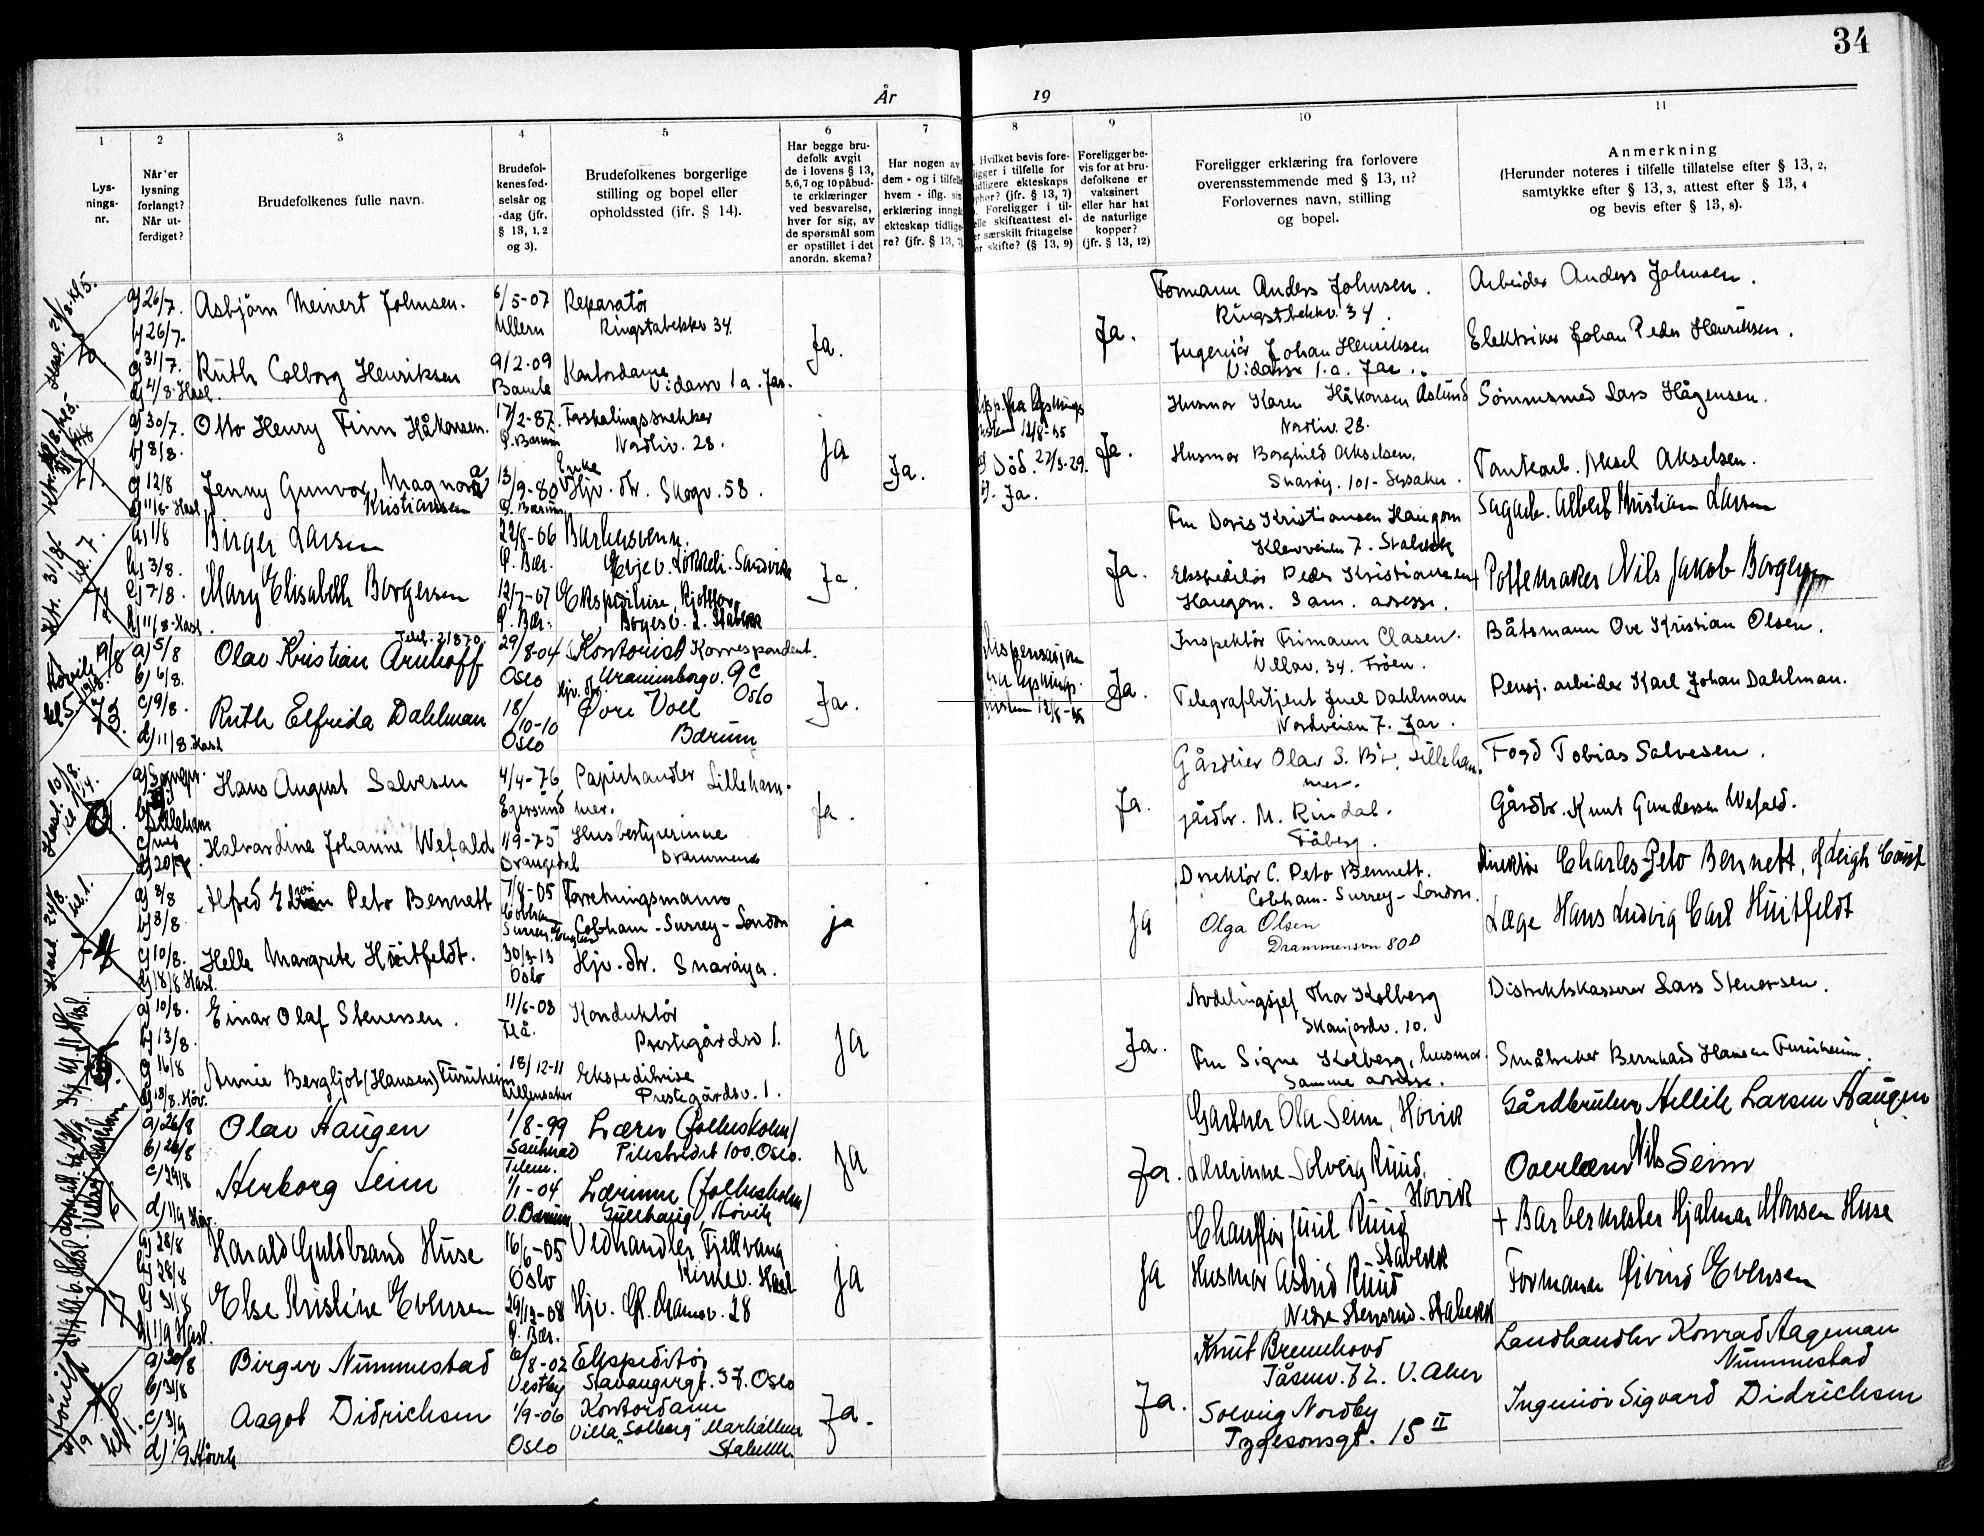 34
År
19
1
2
3
4
5
6
7
8
9
10
11
Lys-
nings-
nr.
Når er
lysning
forlangt?
Når ut-
ferdiget?
Brudefolkenes fulle navn.
Brudefol-
kenes fød-
selsår og
-dag (jfr.
§ 13, 1, 2
og 3).
Brudefolkenes borgerlige
stilling og bopel eller
opholdssted (ifr. § 14).
Har begge bru-
defolk avgit
de i lovens § 13,
5,6,7 og 10 påbud-
te erklæringer
ved besvarelse,
hver for sig, av
de spørsmål som
er opstillet i det
anordn. skema?
Har nogen av
dem - og i tilfelle
hvem - iflg. sin
erklæring inngå
ekteskap tidlige-
re? (jfr. § 13, 7)
Hvilket bevis fore-
ligger i tilfelle for
tidligere ekteskaps
ophør? (jfr. § 13, 7)
Foreligger i til-
felle skifteattest el-
er særskilt fritagelse
or skifte? (§ 13, 9)
Foreligger be-
vis for at bru-
defolkene er
vaksinert
eller har hat
de naturlige
kopper?
(jfr. § 13, 12)
Foreligger erklæring fra forlovere
overensstemmende med § 13, 11?
Forlovernes navn, stilling
og bopel.
Anmerkning
(Herunder noteres i tilfelle tillatelse efter § 13, 2,
samtykke efter § 13, 3, attest efter § 13, 4
og bevis efter § 13, 8).
a) 26/7.
b) 26/7.
c) 31/7.
d) 4/8. Hasl.
Asbjørn Meinert Johnsen.
6/5-07
Ullern
Reparatør
Ringstabekkv. 34.
Ruth Colborg Henriksen
9/2-09
Bamle
Kontordame
Vidarsv 1a. Jar.
Ja.
Ja.
Formann Anders Johnsen.
Ringstbekkv. 34.
Ingeniør Johan Henriksen
Vidarsv 1.a. Jar.
Arbeider Anders Johnsen.
Elektriker Johan Peder Henriksen.
a) 30/7.
b) 8/8.
c) 12/8
Otto Henry Finn Håkonsen.
17/2-87.
Ø. Bærum
Forskalingssnekker
Nordliv. 28.
Jenny Gunvor Magnora
Kristiansen
13/9-80
Ø. Bærum
Enke
Hjv. dtr. Skogv. 58.
ja
Ja.
fra lysnings
12/8-35
Død. 27/3-29.
Ja.
Ja.
Husmor Karen Håkonsen Aslund
Nordliv. 28.
Husmor Borghild Akselsen.
Snarøy. 101 -
Sømmesmed Lars Hågensen.
Tankearb. Aksel Akselsen.
a) 1/8
b) 3/8.
c) 7/8.
d) 11/8. Hasl.
Birger Larsen
22/8-06
Ø. Bær.
Evje v. Løkkeh. Sandvika
Mary Elisabeth Borgersen
12/7-07
Ø. Bær.
Ekspeditrise
Stabekk
Ja
Ja.
Fru Doris Kristiansen Haugom
Klevveien 7. Stabekk
Ekspeditør Peder Kristiansen
Haugom. Sam. adresse.
Sagarb. Albert Kristian Larsen
+ Pottemaker Nils Jakob Borgersen
a) 5/8
b) 6/8.
c) 9/8.
d) 11/8. Hasl
Telef. 21870
Olav Kristian Arnhoff
29/8-04
Oslo
Kontorist Korrespondent.
Uranienborgv. 9c
Oslo
Ruth Elfrida Dahlman
18/10-10
Oslo
Hjv. dtr.
Øvre Voll
Bærum
Ja.
Dispensasjon
fra lysnings-
12/8-35
Ja.
Inspektør Frimann Clasen.
Ullav. 34. Frøen.
Telegrafbetjent Juel Dahlman
Nordveien 7. Jar.
Båtsmann Ove Kristian Olsen.
Pensj. arbeider Karl Johan Dahlman.
Hans August Salvesen
4/4-76
Egersund
Papirhandler Lilleham-
mer.
Halvardine Johanne Wefald
1/9-75
Drangedal
Husbestyrerinne
Drammen
Ja.
Ja.
Gårdeier Olav S. Bø, Lilleham-
mer.
gårdbr. M. Rindal.
Fåberg.
Fogd Tobias Salvesen.
Gårdbr. Knut Gundersen Wefald.
a) 8/8
b) 8/8.
c) 10/8.
d) 18/8 Hasl.
Alfred Edwin Peto Bennett
7/8-05
Cobham
Surrey England
Forretningsmann
Cobham - Surrey - London
Helle Margrete Huitfeldt.
30/3-13
Oslo
Hjv. dtr. Snarøya.
ja
Ja
Direktør C. Peto Bennett.
Cobham - Surrey - London.
Olga Olsen
Drammensvn 80D
Direktør Charles Peto Bennett, of Leigh Court
Læge Hans Ludvig Carl Huitfeldt
a) 10/8.
b) 13/8.
c) 16/8
d) 18/8. Høv.
Einar Olaf Stenersen.
11/6-08
Flå.
Konduktør
Prestegårdsv 1.
Annie Bergljot (Hansen) Furuheim
18/12-11
Ullensaker
Ekspeditrise
Prestegårdsv. 1.
Ja
Ja.
Avdelingsjef Thor Kolberg
Skanjordv. 10.
Fru Signe Kolberg, husmor.
Samme adresse.
Distriktskasserer Lars Stenersen.
Småbruker Bernhard Hansen Furuheim.
a) 26/8
b) 26/8
c) 29/8
d) 1/9 Høv.
Olav Haugen
1/8-99
Sauherad
Telem.
Lærer (folkeskolen)
Pilestredet 100. Oslo.
Herborg Seim
1/1-04
V. Bærum
Lærerinne (folkeskolen)
Gullhaug, Høvik
Ja
Ja.
Gartner Ola Seim, Høvik
Lærerinne Solveig Ruud,
Høvik
Gårdbruker Hellik Larsen Haugen
Overlærer Nils Seim
a) 28/8
b) 28/8
c) 31/8
d) 1/9 Hasl.
Harald Guldbrand Huse
16/6-05
Oslo
Vedhandler Fjellvang
Kirkev. Hasl
Else Kristine Evensen
29/12-08
Ø. Bær.
Hjv. Gl. Dramsv. 28
ja
Ja
Chauffør Juul Ruud
Stabekk
Husmor Astrid Ruud
Nedre Stensrud - Stabekk
+ Barbermester Hjalmar Monsen Huse
Formann Øivind Evensen
a) 30/8
b) 31/8
c) 3/9
d) 1/9 Høvik
Birger Nummestad
6/8-02
Vestby
Ekspeditør
Stavangergt. 37. Oslo
Aagot Didrichsen
1/9-06
Oslo
Kontordame
Villa "Solberg" Markalleen
Stabekk
Ja.
Ja.
Knut Brennhovd
Tåsenv. 72. V. Aker
Solveig Nordby
Tygesonsgt. 15 II
Landhandler Konrad Aageman
Nummestad
Ingeniør Sigvard Didrichsen